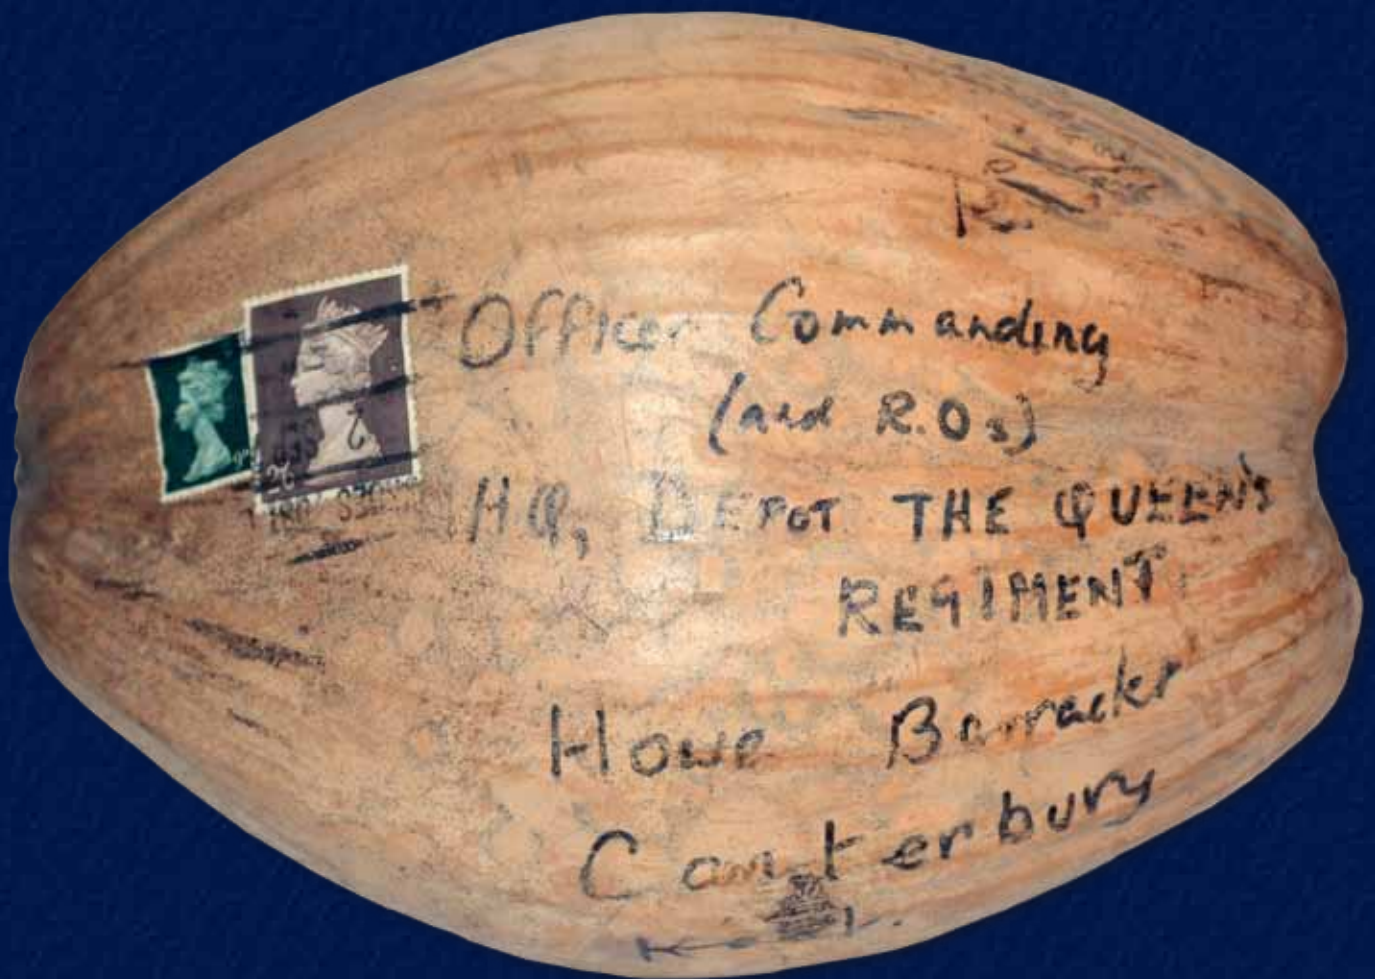 Officer Commanding
(and R.Os)
HQ, DEPOT THE QUEEN'S
REGIMENT.
Howe Barracks
Canterbury